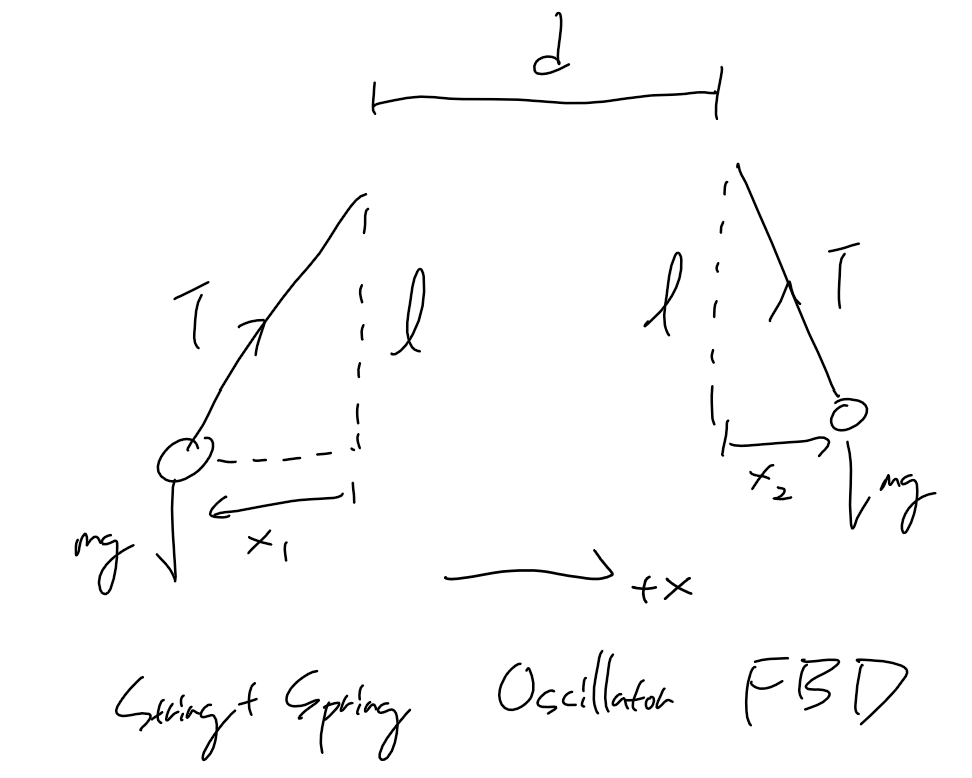 d
T l l T
x₁ x₂
mg mg
+x
String + Spring Oscillator FBD